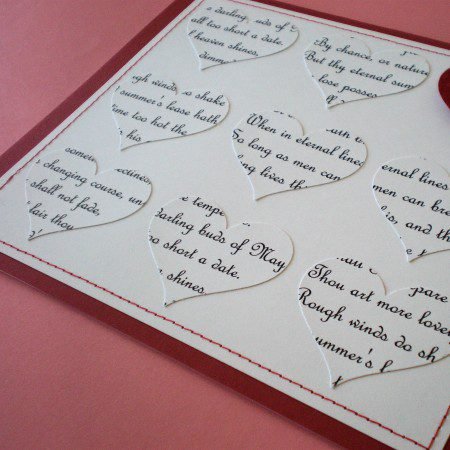 darling buds of
all too short a date.
heaven shines,
By chance, or nature
But thy eternal sum
lose posses
ough winds do shake
summer's lease hath
time too hot the
his
When in eternal lines
So long as men can
long lives this
eternal lines
men can brea
is, and this
changing course, un
shall not fade,
fair thou
tempe
darling buds of May
oo short a date.
shines,
pare
Thou art more lovely
Rough winds do sh
ummer's l